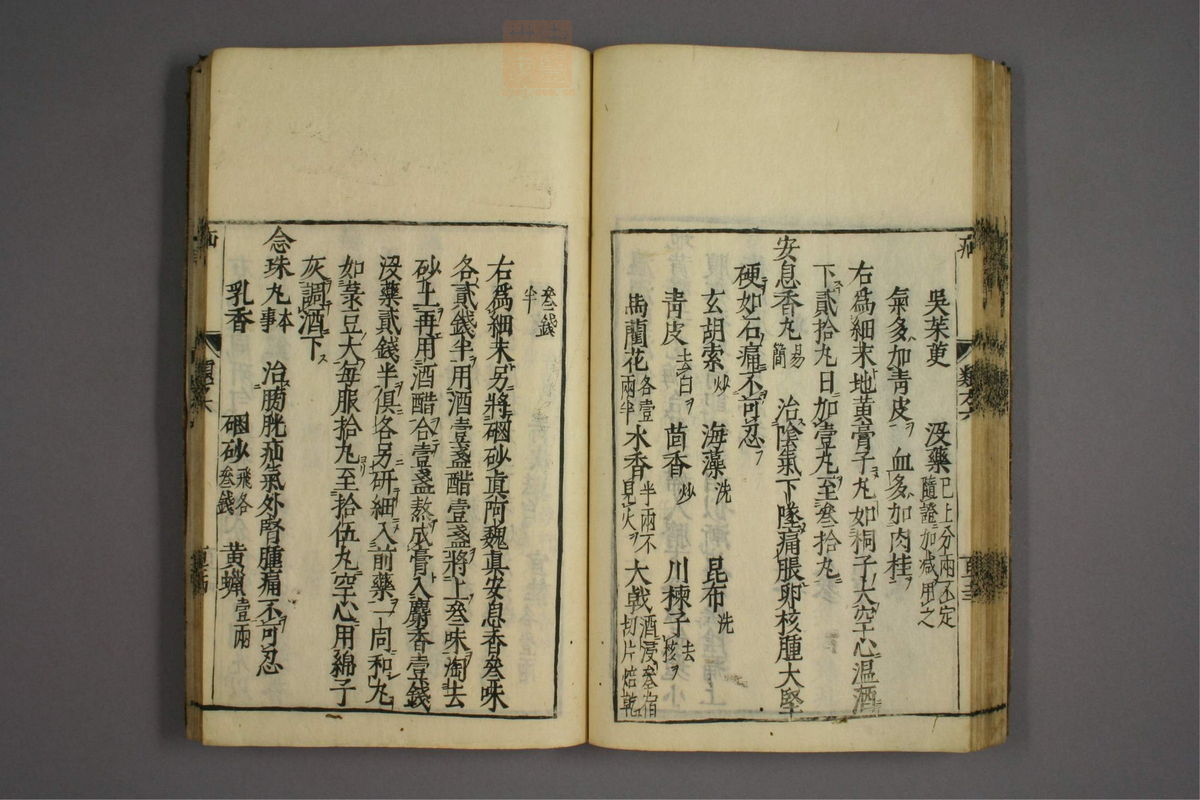 吳茱萸 沒藥已上分兩不定隨證加減用之
氣多加青皮ヲ血多加肉桂ヲ
右爲細末地黃膏子丸如桐子大空心温酒
下貳拾丸日加壹丸至叄拾丸
安息香丸易簡 治陰氣下墜痛脹卵核腫大堅
硬如石痛不可忍
玄胡索炒 海藻洗 昆布洗
青皮去白 茴香炒 川楝子去核
馬藺花各壹兩半 木香半兩不見火 大戟酒浸叄宿切片焙乾
叄錢半
右爲細末另將硇砂真阿魏真安息香叄味
各貳錢半用酒壹盞醋壹盞將上叄味淘去
砂土再用酒醋合壹盞熬成膏入麝香壹錢
沒藥貳錢半俱各另研細入前藥一同和丸
如菉豆大每服拾丸至拾伍丸空心用綿子
灰調酒下
念珠丸本事 治膀胱疝氣外腎腫痛不可忍
乳香 硇砂飛各叄錢 黃蠟壹兩